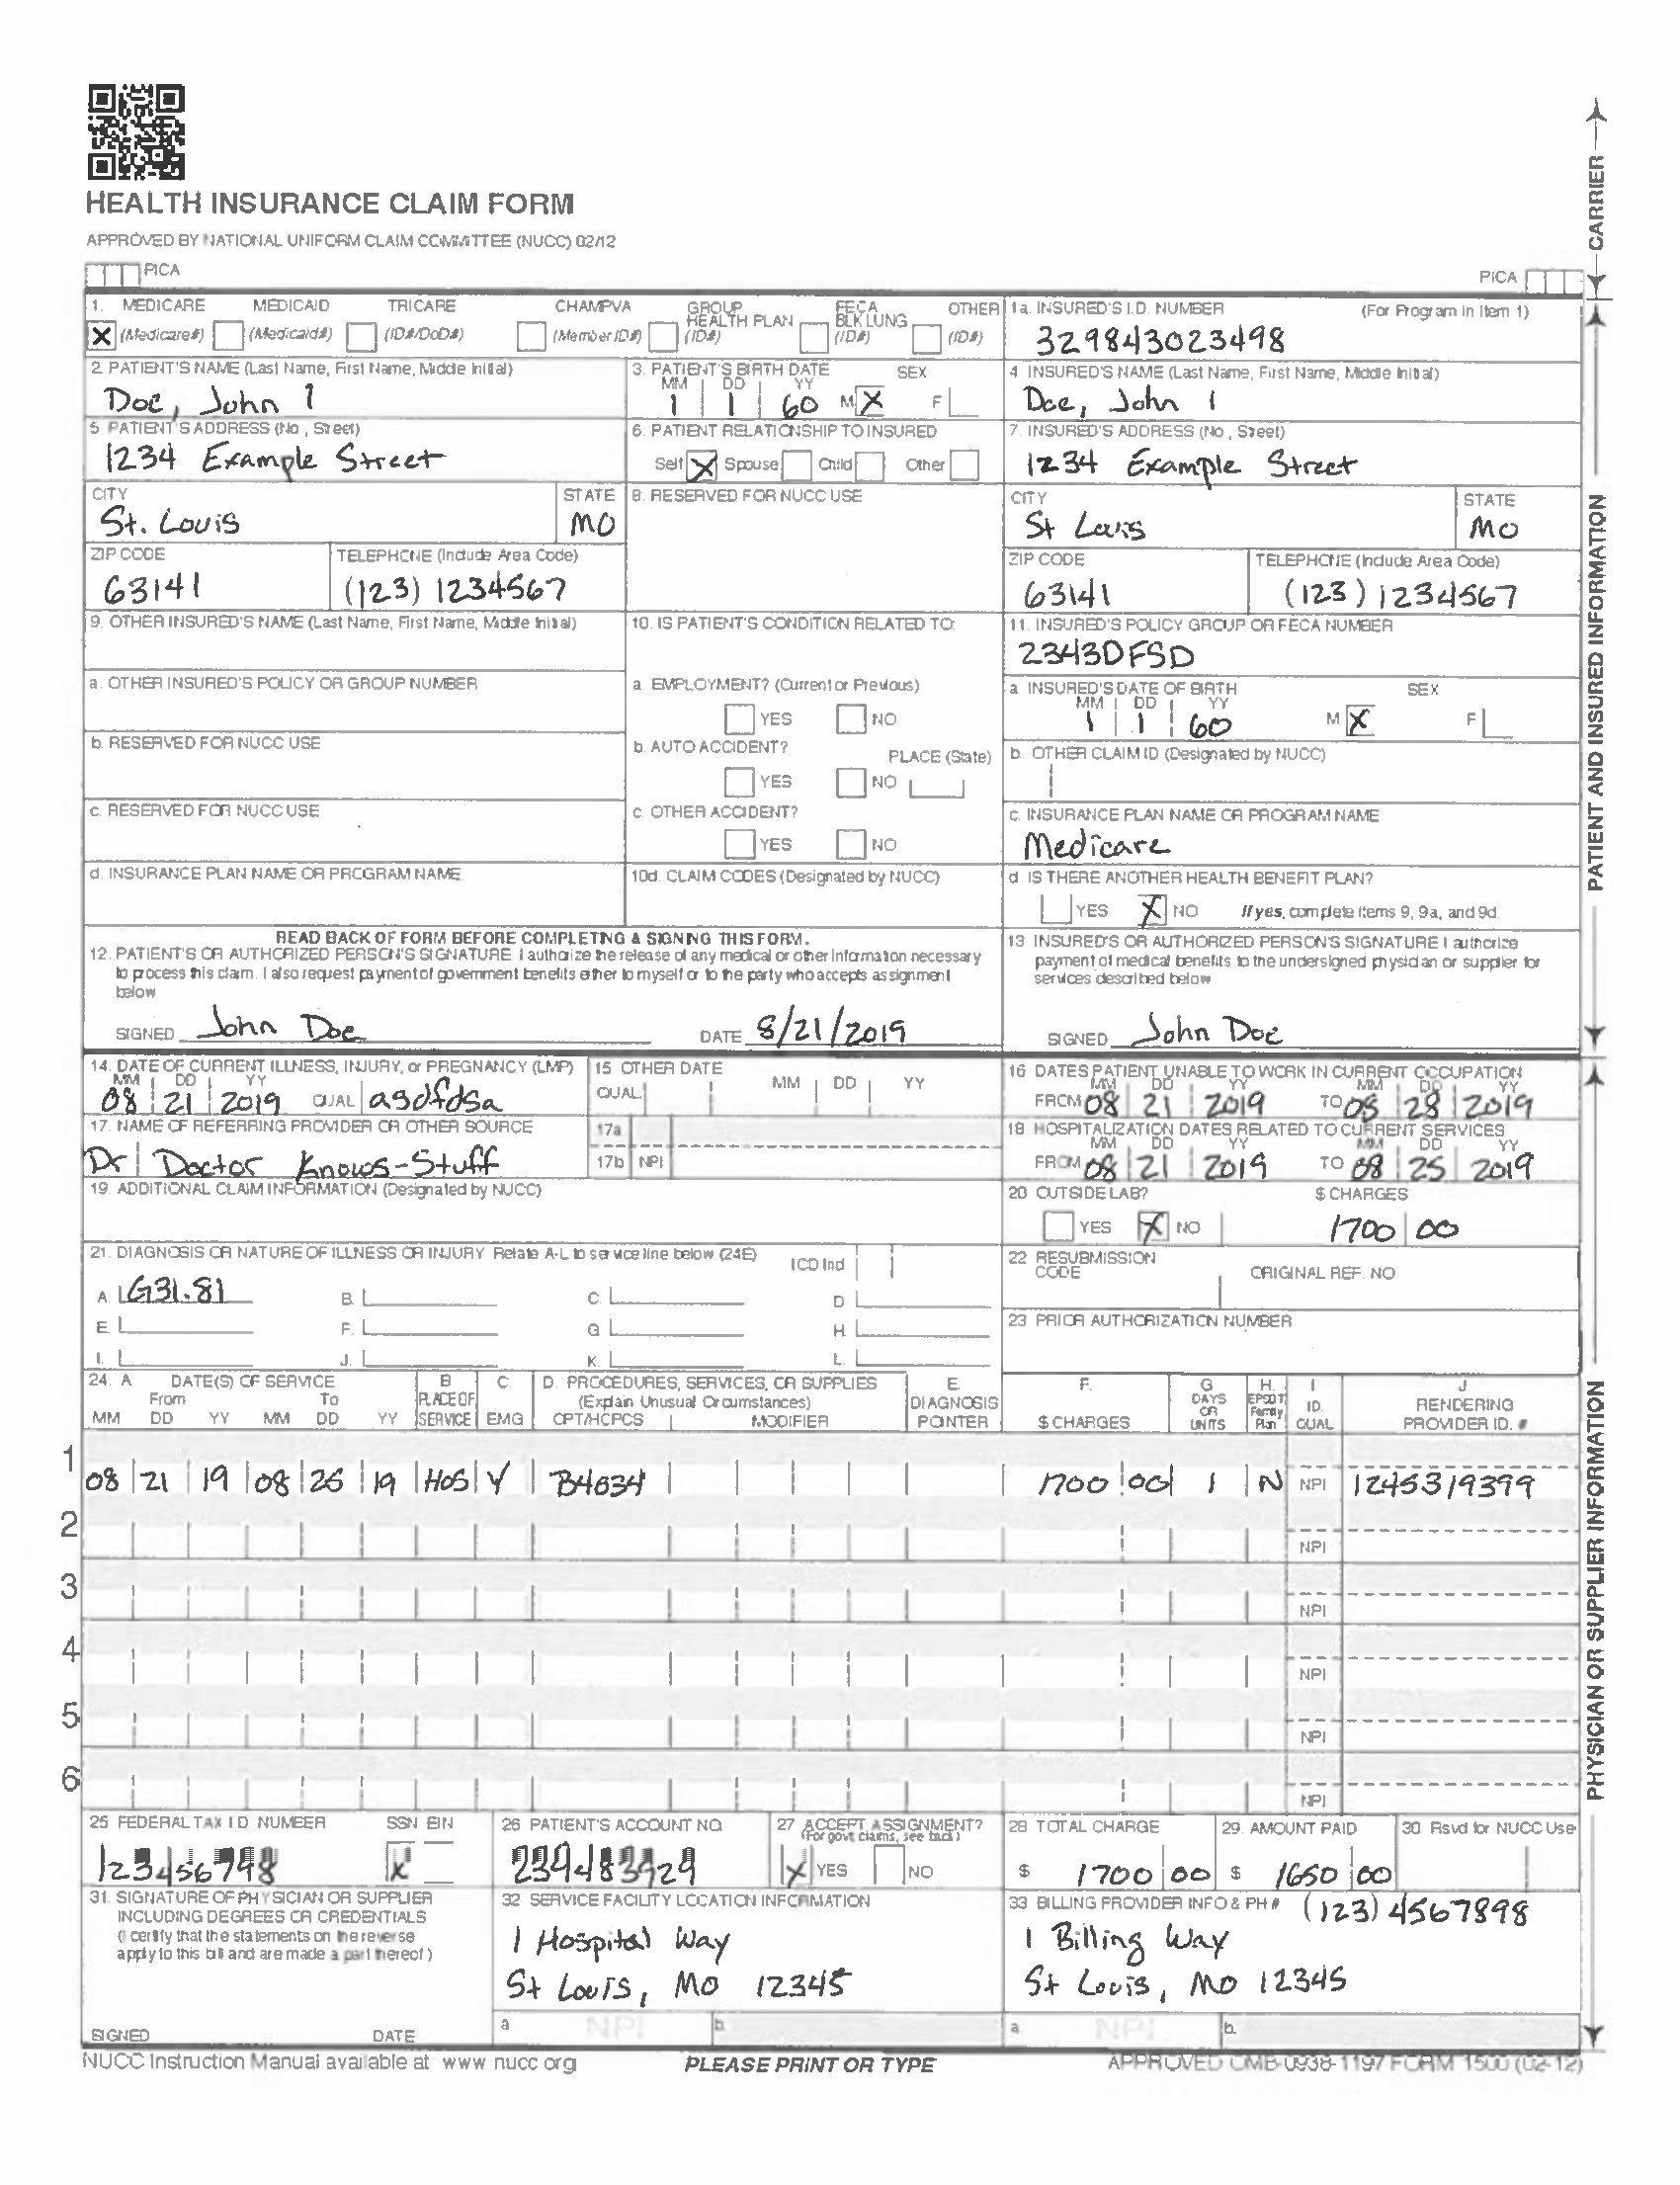 HEALTH INSURANCE CLAIM FORM
APPROVED BY NATIONAL UNIFORM CLAIM COMMITTEE (NUCC) 02/12
PICA
PICA
CARRIER
1. MEDICARE MEDICAID TRICARE CHAMPVA GROUP HEALTH PLAN FECA BLK LUNG OTHER
X (Medicare#) (Medicaid#) (ID#/DoD#) (Member ID#) (ID#) (ID#) (ID#)
1a. INSURED'S I.D. NUMBER (For Program in Item 1)
329843023498
2. PATIENT'S NAME (Last Name, First Name, Middle Initial)
Doe, John 1
3. PATIENT'S BIRTH DATE SEX
MM DD YY
1 1 60 M X F
4 INSURED'S NAME (Last Name, First Name, Middle Initial)
Doe, John 1
5 PATIENT'S ADDRESS (No, Street)
1234 Example Street
6. PATIENT RELATIONSHIP TO INSURED
Self X Spouse Child Other
7. INSURED'S ADDRESS (No, Street)
1234 Example Street
CITY STATE
St. Louis MO
8. RESERVED FOR NUCC USE
CITY STATE
St Louis MO
ZIP CODE TELEPHONE (Include Area Code)
63141 (123) 1234567
ZIP CODE TELEPHONE (Include Area Code)
63141 (123) 1234567
9. OTHER INSURED'S NAME (Last Name, First Name, Middle Initial)
10. IS PATIENT'S CONDITION RELATED TO:
11. INSURED'S POLICY GROUP OR FECA NUMBER
2343DFSD
a. OTHER INSURED'S POLICY OR GROUP NUMBER
a EMPLOYMENT? (Current or Previous)
YES NO
a INSURED'S DATE OF BIRTH SEX
MM DD YY
1 1 60 M X F
b. RESERVED FOR NUCC USE
b. AUTO ACCIDENT? PLACE (State)
YES NO
b. OTHER CLAIM ID (Designated by NUCC)
c. RESERVED FOR NUCC USE
c. OTHER ACCIDENT?
YES NO
c. INSURANCE PLAN NAME OR PROGRAM NAME
Medicare
d. INSURANCE PLAN NAME OR PROGRAM NAME
10d. CLAIM CODES (Designated by NUCC)
d IS THERE ANOTHER HEALTH BENEFIT PLAN?
YES X NO If yes, complete items 9, 9a, and 9d.
READ BACK OF FORM BEFORE COMPLETING & SIGNING THIS FORM.
12. PATIENT'S OR AUTHORIZED PERSON'S SIGNATURE I authorize the release of any medical or other information necessary
to process this claim. I also request payment of government benefits either to myself or to the party who accepts assignment
below
SIGNED John Doe DATE 8/21/2019
13 INSURED'S OR AUTHORIZED PERSON'S SIGNATURE I authorize
payment of medical benefits to the undersigned physician or supplier for
services described below
SIGNED John Doe
PATIENT AND INSURED INFORMATION
14. DATE OF CURRENT ILLNESS, INJURY, or PREGNANCY (LMP)
MM DD YY
08 21 2019 QUAL asdfdsa
15 OTHER DATE
QUAL MM DD YY
16 DATES PATIENT UNABLE TO WORK IN CURRENT OCCUPATION
MM DD YY MM DD YY
FROM 08 21 2019 TO 08 28 2019
17. NAME OF REFERRING PROVIDER OR OTHER SOURCE
Dr Doctor Knows-Stuff
17a
17b NPI
18 HOSPITALIZATION DATES RELATED TO CURRENT SERVICES
MM DD YY MM DD YY
FROM 08 21 2019 TO 08 25 2019
19. ADDITIONAL CLAIM INFORMATION (Designated by NUCC)
20 OUTSIDE LAB? $ CHARGES
YES X NO 1700 00
21. DIAGNOSIS OR NATURE OF ILLNESS OR INJURY Relate A-L to service line below (24E) ICD Ind
A. G31.81 B. C. D.
E. F. G. H.
I. J. K. L.
22 RESUBMISSION CODE ORIGINAL REF. NO
23 PRIOR AUTHORIZATION NUMBER
24. A DATE(S) OF SERVICE B C. D. PROCEDURES, SERVICES, OR SUPPLIES E. F. G H. I J
From To PLACE OF SERVICE EMG (Explain Unusual Circumstances) DIAGNOSIS POINTER $ CHARGES DAYS OR UNITS EPSDT Family Plan ID. QUAL RENDERING PROVIDER ID. #
MM DD YY MM DD YY CPT/HCPCS MODIFIER
1 08 21 19 08 25 19 HOS Y B4034 1700 00 1 N NPI 1245319399
2 NPI
3 NPI
4 NPI
5 NPI
6 NPI
PHYSICIAN OR SUPPLIER INFORMATION
25 FEDERAL TAX I D NUMBER SSN EIN
123456798 X
26 PATIENT'S ACCOUNT NO.
239483929
27 ACCEPT ASSIGNMENT?
(For govt claims, see back)
X YES NO
28 TOTAL CHARGE
$ 1700 00
29. AMOUNT PAID
$ 1650 00
30 Rsvd for NUCC Use
31. SIGNATURE OF PHYSICIAN OR SUPPLIER
INCLUDING DEGREES OR CREDENTIALS
(I certify that the statements on the reverse
apply to this bill and are made a part thereof)
SIGNED DATE
32 SERVICE FACILITY LOCATION INFORMATION
1 Hospital Way
St Louis, MO 12345
a NPI b.
33 BILLING PROVIDER INFO & PH # (123) 4567898
1 Billing Way
St Louis, MO 12345
a NPI b.
NUCC Instruction Manual available at www nucc org
PLEASE PRINT OR TYPE
APPROVED OMB-0938-1197 FORM 1500 (02-12)